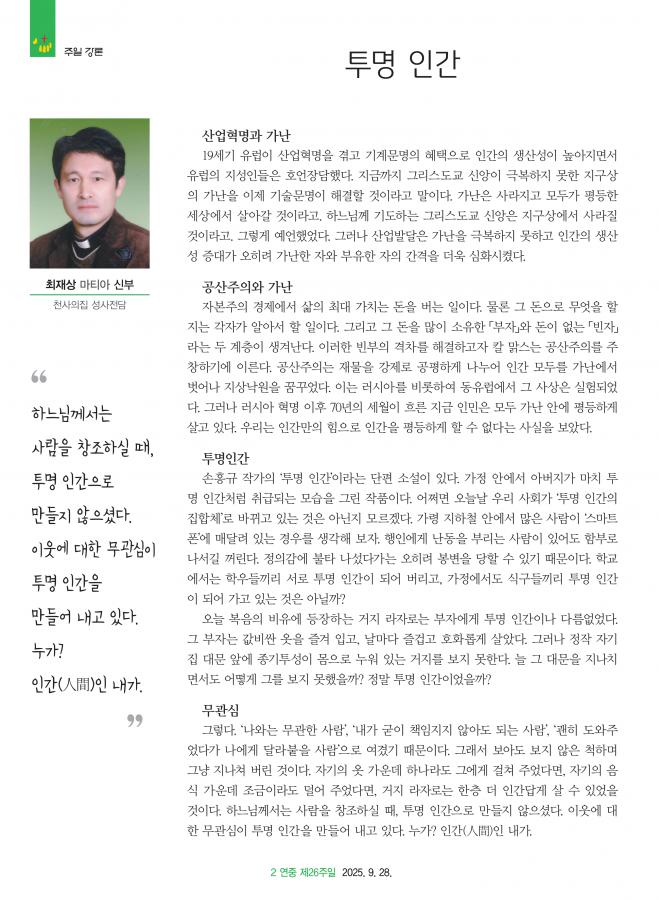 주일 강론
투명 인간
최재상 마티아 신부
천사의집 성사전담
“
하느님께서는
사람을 창조하실 때,
투명 인간으로
만들지 않으셨다.
이웃에 대한 무관심이
투명 인간을
만들어 내고 있다.
누가?
인간(人間)인 내가.
”
산업혁명과 가난
19세기 유럽이 산업혁명을 겪고 기계문명의 혜택으로 인간의 생산성이 높아지면서
유럽의 지성인들은 호언장담했다. 지금까지 그리스도교 신앙이 극복하지 못한 지구상
의 가난을 이제 기술문명이 해결할 것이라고 말이다. 가난은 사라지고 모두가 평등한
세상에서 살아갈 것이라고, 하느님께 기도하는 그리스도교 신앙은 지구상에서 사라질
것이라고. 그렇게 예언했었다. 그러나 산업발달은 가난을 극복하지 못하고 인간의 생산
성 증대가 오히려 가난한 자와 부유한 자의 간격을 더욱 심화시켰다.
공산주의와 가난
자본주의 경제에서 삶의 최대 가치는 돈을 버는 일이다. 물론 그 돈으로 무엇을 할
지는 각자가 알아서 할 일이다. 그리고 그 돈을 많이 소유한 「부자」와 돈이 없는 「빈자」
라는 두 계층이 생겨난다. 이러한 빈부의 격차를 해결하고자 칼 맑스는 공산주의를 주
창하기에 이른다. 공산주의는 재물을 강제로 공평하게 나누어 인간 모두를 가난에서
벗어나 지상낙원을 꿈꾸었다. 이는 러시아를 비롯하여 동유럽에서 그 사상은 실험되었
다. 그러나 러시아 혁명 이후 70년의 세월이 흐른 지금 인민은 모두 가난 안에 평등하게
살고 있다. 우리는 인간만의 힘으로 인간을 평등하게 할 수 없다는 사실을 보았다.
투명인간
손홍규 작가의 ‘투명 인간’이라는 단편 소설이 있다. 가정 안에서 아버지가 마치 투
명 인간처럼 취급되는 모습을 그린 작품이다. 어쩌면 오늘날 우리 사회가 ‘투명 인간의
집합체’로 바뀌고 있는 것은 아닌지 모르겠다. 가령 지하철 안에서 많은 사람이 ‘스마트
폰’에 매달려 있는 경우를 생각해 보자. 행인에게 난동을 부리는 사람이 있어도 함부로
나서길 꺼린다. 정의감에 불타 나섰다가는 오히려 봉변을 당할 수 있기 때문이다. 학교
에서는 학우들끼리 서로 투명 인간이 되어 버리고, 가정에서도 식구들끼리 투명 인간
이 되어 가고 있는 것은 아닐까?
오늘 복음의 비유에 등장하는 거지 라자로는 부자에게 투명 인간이나 다름없었다.
그 부자는 값비싼 옷을 즐겨 입고, 날마다 즐겁고 호화롭게 살았다. 그러나 정작 자기
집 대문 앞에 종기투성이 몸으로 누워 있는 거지를 보지 못한다. 늘 그 대문을 지나치
면서도 어떻게 그를 보지 못했을까? 정말 투명 인간이었을까?
무관심
그렇다. ‘나와는 무관한 사람’, ‘내가 굳이 책임지지 않아도 되는 사람’, ‘괜히 도와주
었다가 나에게 달라붙을 사람’으로 여겼기 때문이다. 그래서 보아도 보지 않은 척하며
그냥 지나쳐 버린 것이다. 자기의 옷 가운데 하나라도 그에게 걸쳐 주었다면, 자기의 음
식 가운데 조금이라도 덜어 주었다면, 거지 라자로는 한층 더 인간답게 살 수 있었을
것이다. 하느님께서는 사람을 창조하실 때, 투명 인간으로 만들지 않으셨다. 이웃에 대
한 무관심이 투명 인간을 만들어 내고 있다. 누가? 인간(人間)인 내가.
2 연중 제26주일 2025. 9. 28.